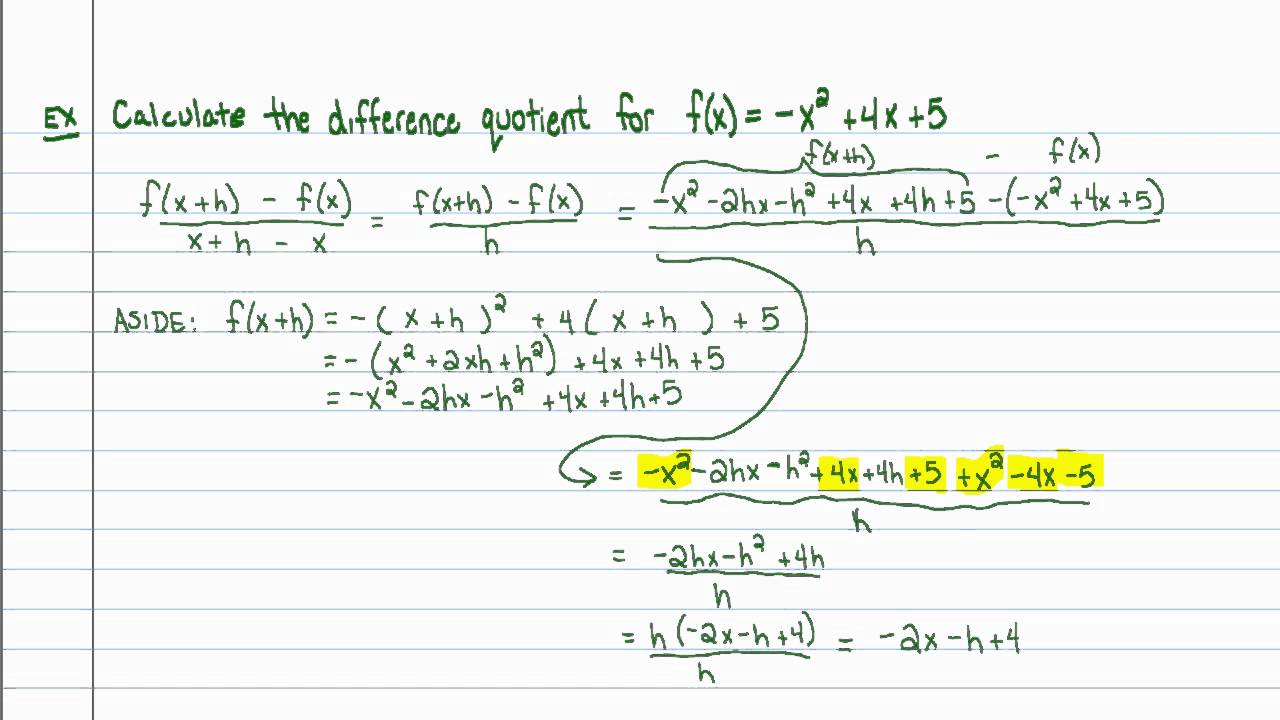 EX Calculate the difference quotient for f(x) = -x² +4x+5
f(x+h) - f(x)
f(x+h) - f(x) / x+h - x = f(x+h) - f(x) / h = -x² -2hx -h² +4x +4h +5 -(-x² +4x +5) / h
ASIDE: f(x+h) = -( x+h )² + 4( x+h ) + 5
= -(x² +2xh+h²) +4x +4h +5
= -x² -2hx -h² +4x +4h+5
= -x² -2hx -h² +4x +4h +5 +x² -4x -5 / h
= -2hx -h² +4h / h
= h(-2x -h +4) / h = -2x -h +4